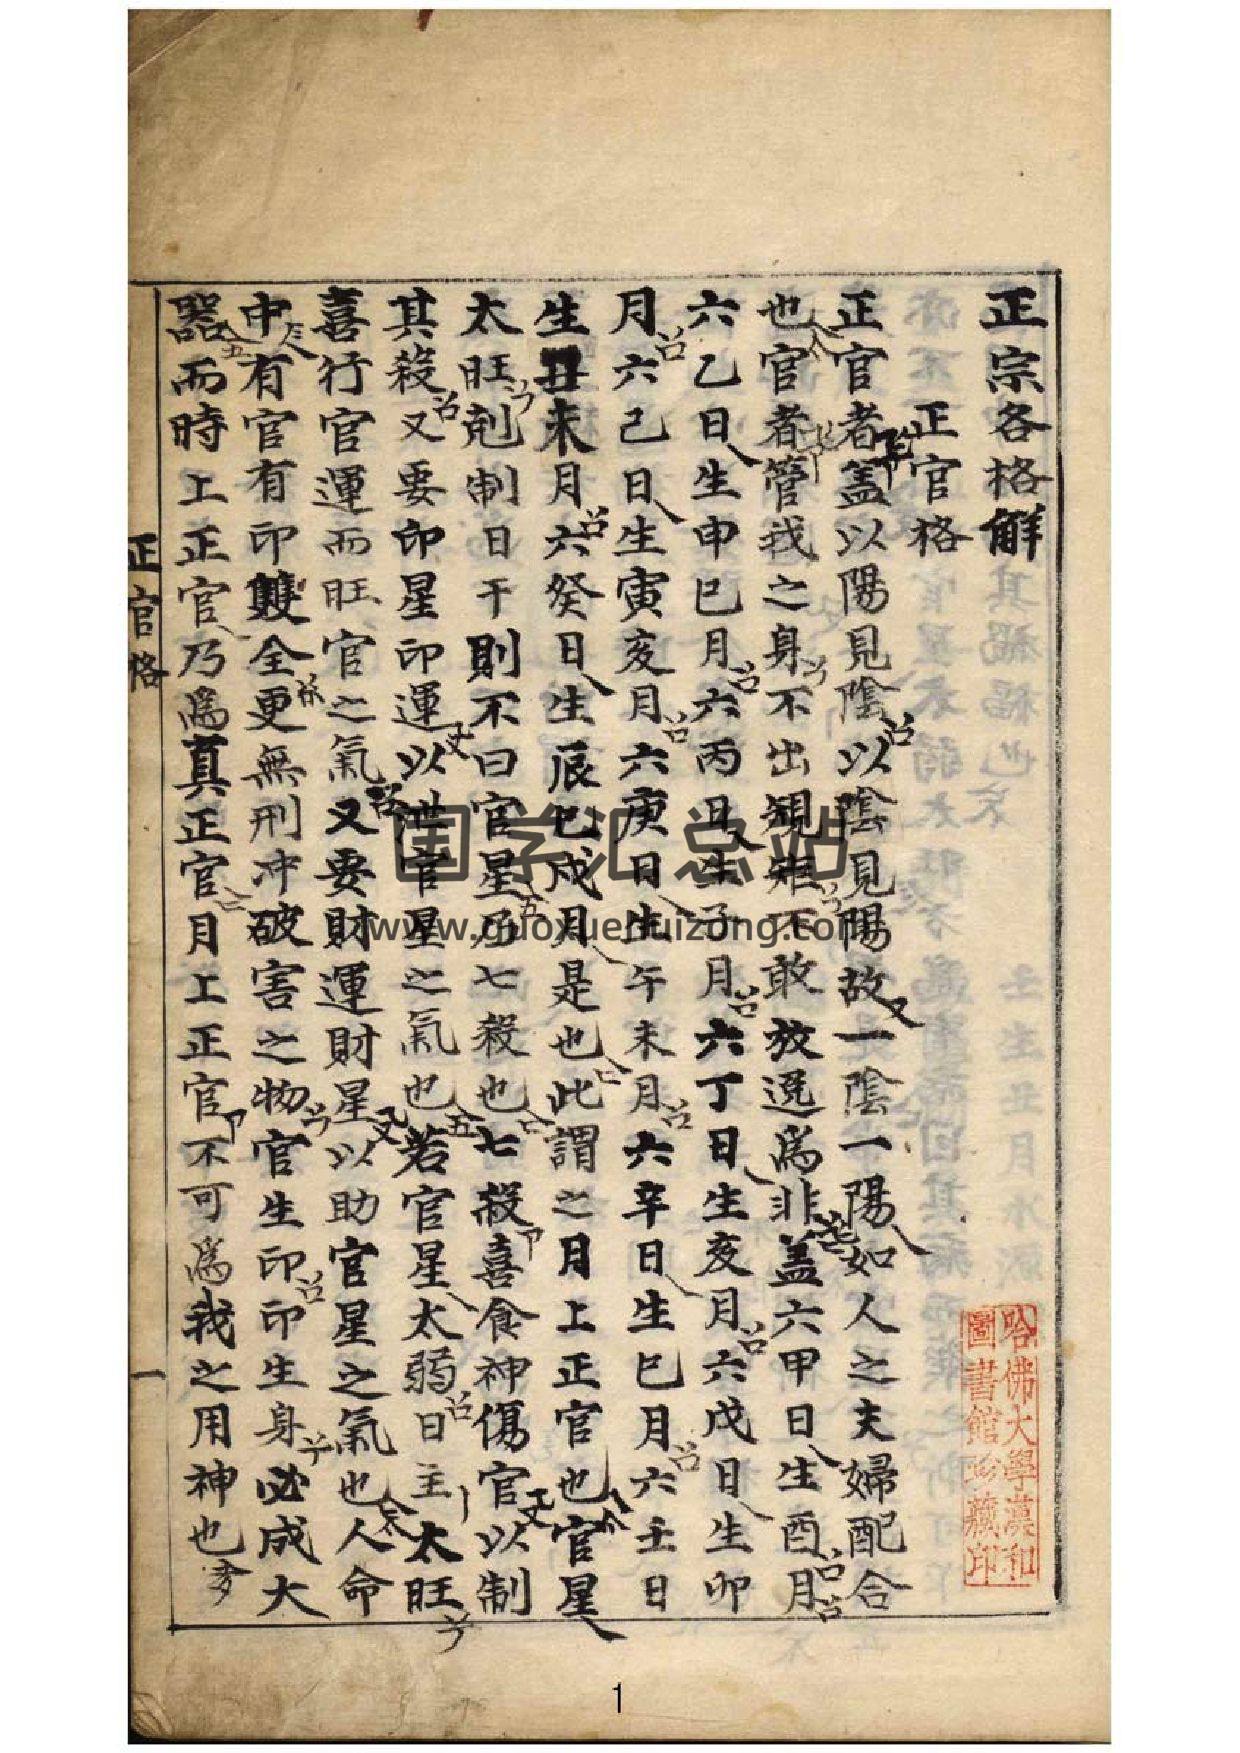 正宗各格解
正官格
正官者盖以陽見陰以陰見陽故一陰一陽如人之夫婦配合
也官者管我之身不出規矩不敢放逞為非盖六甲日生酉月
六乙日生申巳月六丙日生子月六丁日生亥月六戊日生卯
月六己日生寅亥月六庚日生午未月六辛日生巳月六壬日
生丑未月六癸日生辰巳戌月是也此謂之月上正官也官星
太旺剋制日干則不曰官星乃七殺也七殺喜食神傷官以制
其殺又要印星印運以泄官星之氣也若官星太弱日主太旺
喜行官運而旺官之氣又要財運財星以助官星之氣也人命
中有官有印雙全更無刑冲破害之物官生印印生身必成大
器而時上正官乃為真正官月上正官不可為我之用神也
正官格
一
哈佛大學漢和
圖書館珍藏印
国学汇总站
www.guoxuehuizong.com
1